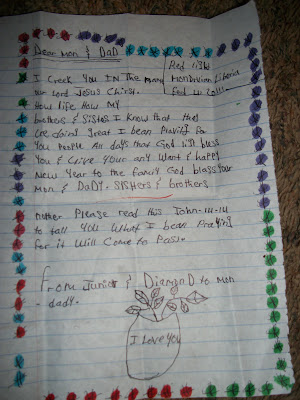 Dear Mon & DaD
Red light
Monrovian Liberia
I Greek You IN The Many
our Lord Jesus Chirst.
How life How MY
brothers & Sister I Know that they
are doing Great I bean Praying Fo
You People All days that God will bless
You & Give your any Want & happy
New Year to the family God blass Your
Mon & DaDY. SisHers & brothers
mother Please read this John-14-14
to tall You What I bean Praying
for it Will Come to Pass.
From Junior & DiamonD to Mon
- dady.
I Love You